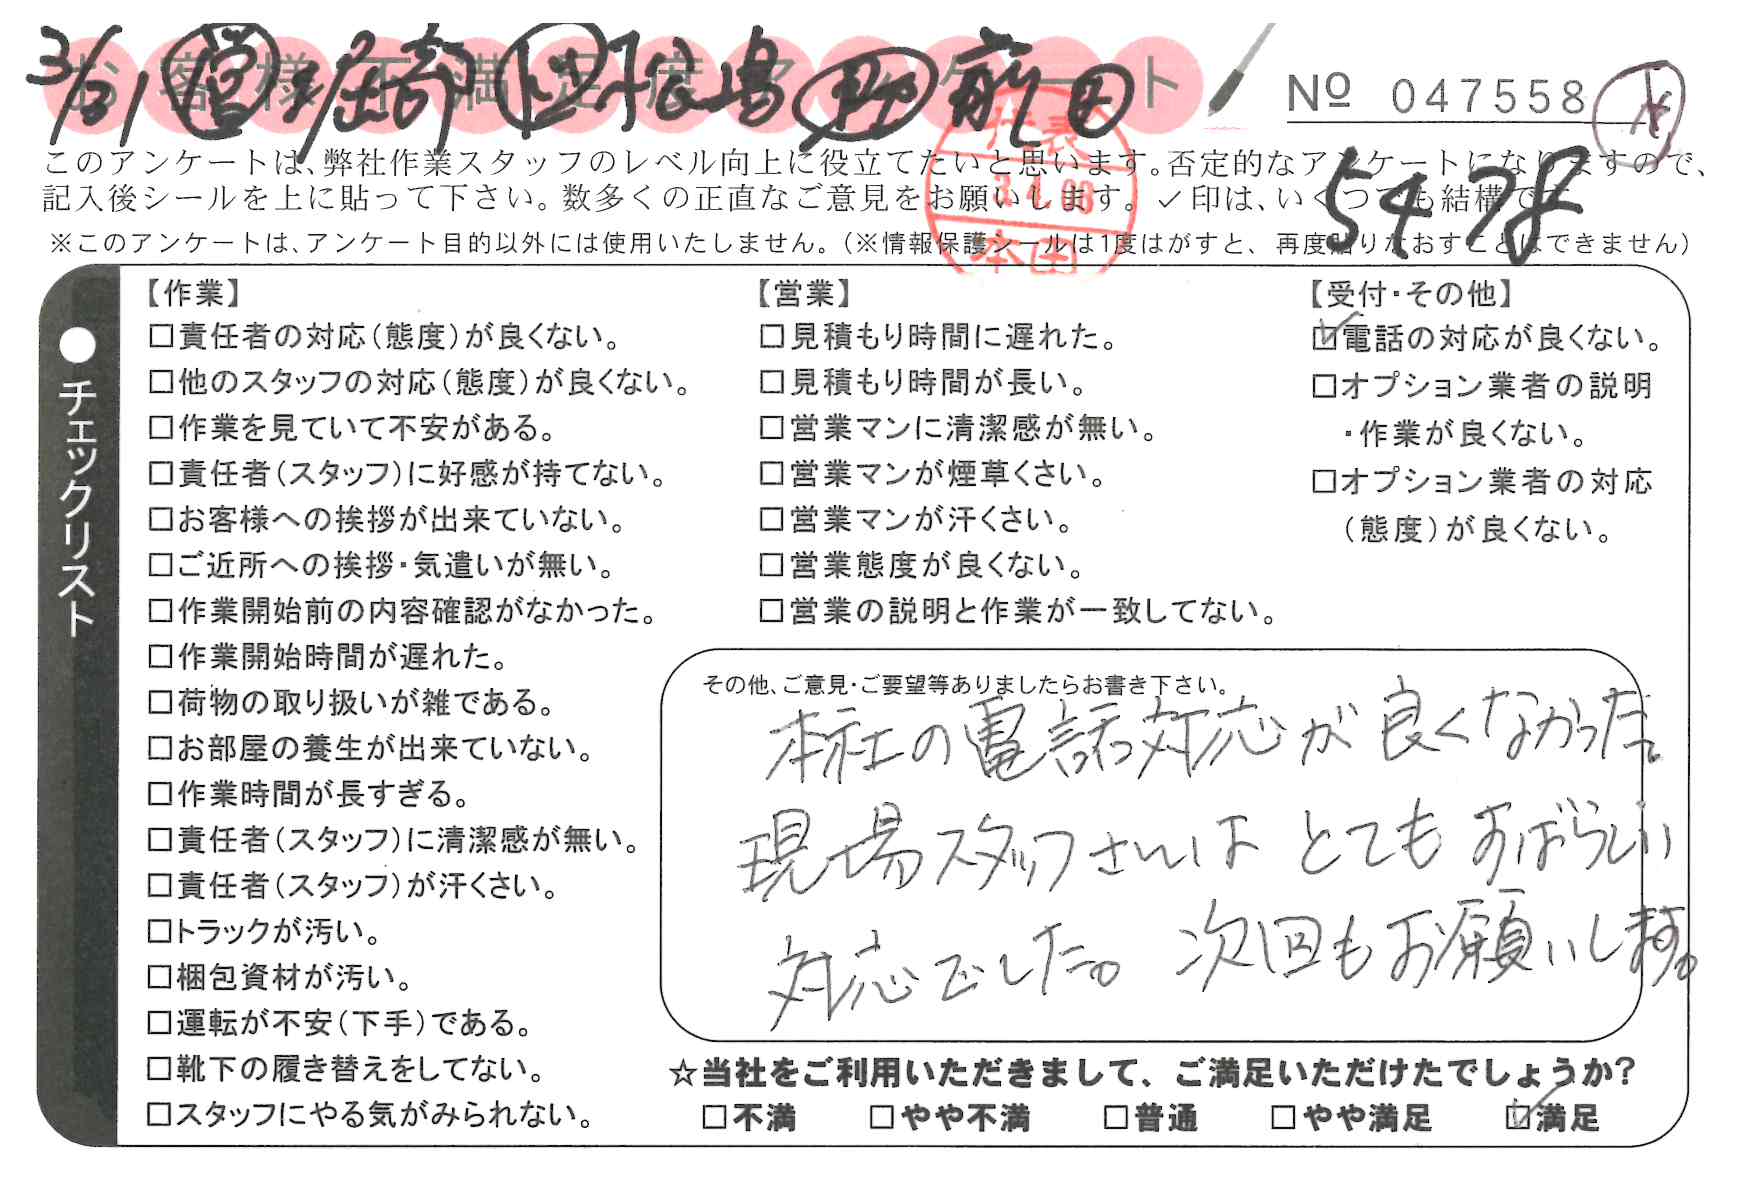 お客様不満足度アンケート
3/31 営 尾崎 現 松島 助 前田
No 047558
5478
代表
3.4.08
本田
このアンケートは、弊社作業スタッフのレベル向上に役立てたいと思います。否定的なアンケートになりますので、
記入後シールを上に貼って下さい。数多くの正直なご意見をお願いします。✓印は、いくつでも結構です。
※このアンケートは、アンケート目的以外には使用いたしません。(※情報保護シールは1度はがすと、再度貼りなおすことはできません)
●チェックリスト
【作業】
□責任者の対応(態度)が良くない。
□他のスタッフの対応(態度)が良くない。
□作業を見ていて不安がある。
□責任者(スタッフ)に好感が持てない。
□お客様への挨拶が出来ていない。
□ご近所への挨拶・気遣いが無い。
□作業開始前の内容確認がなかった。
□作業開始時間が遅れた。
□荷物の取り扱いが雑である。
□お部屋の養生が出来ていない。
□作業時間が長すぎる。
□責任者(スタッフ)に清潔感が無い。
□責任者(スタッフ)が汗くさい。
□トラックが汚い。
□梱包資材が汚い。
□運転が不安(下手)である。
□靴下の履き替えをしてない。
□スタッフにやる気がみられない。
【営業】
□見積もり時間に遅れた。
□見積もり時間が長い。
□営業マンに清潔感が無い。
□営業マンが煙草くさい。
□営業マンが汗くさい。
□営業態度が良くない。
□営業の説明と作業が一致してない。
【受付・その他】
☑電話の対応が良くない。
□オプション業者の説明
・作業が良くない。
□オプション業者の対応
(態度)が良くない。
その他、ご意見・ご要望等ありましたらお書き下さい。
本社の電話対応が良くなかった。
現場スタッフさんは とても すばらしい
対応でした。次回もお願いします。
☆当社をご利用いただきまして、ご満足いただけたでしょうか?
□不満 □やや不満 □普通 □やや満足 ☑満足